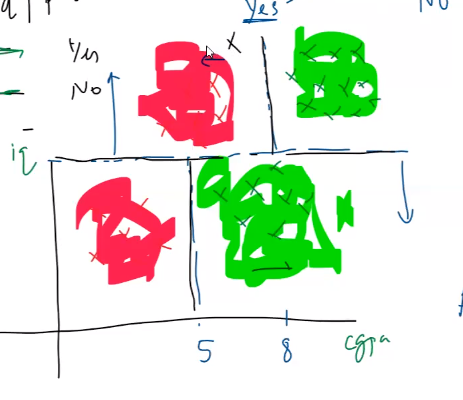 Yes
No
Yes
No
iq
5
8
cgpa